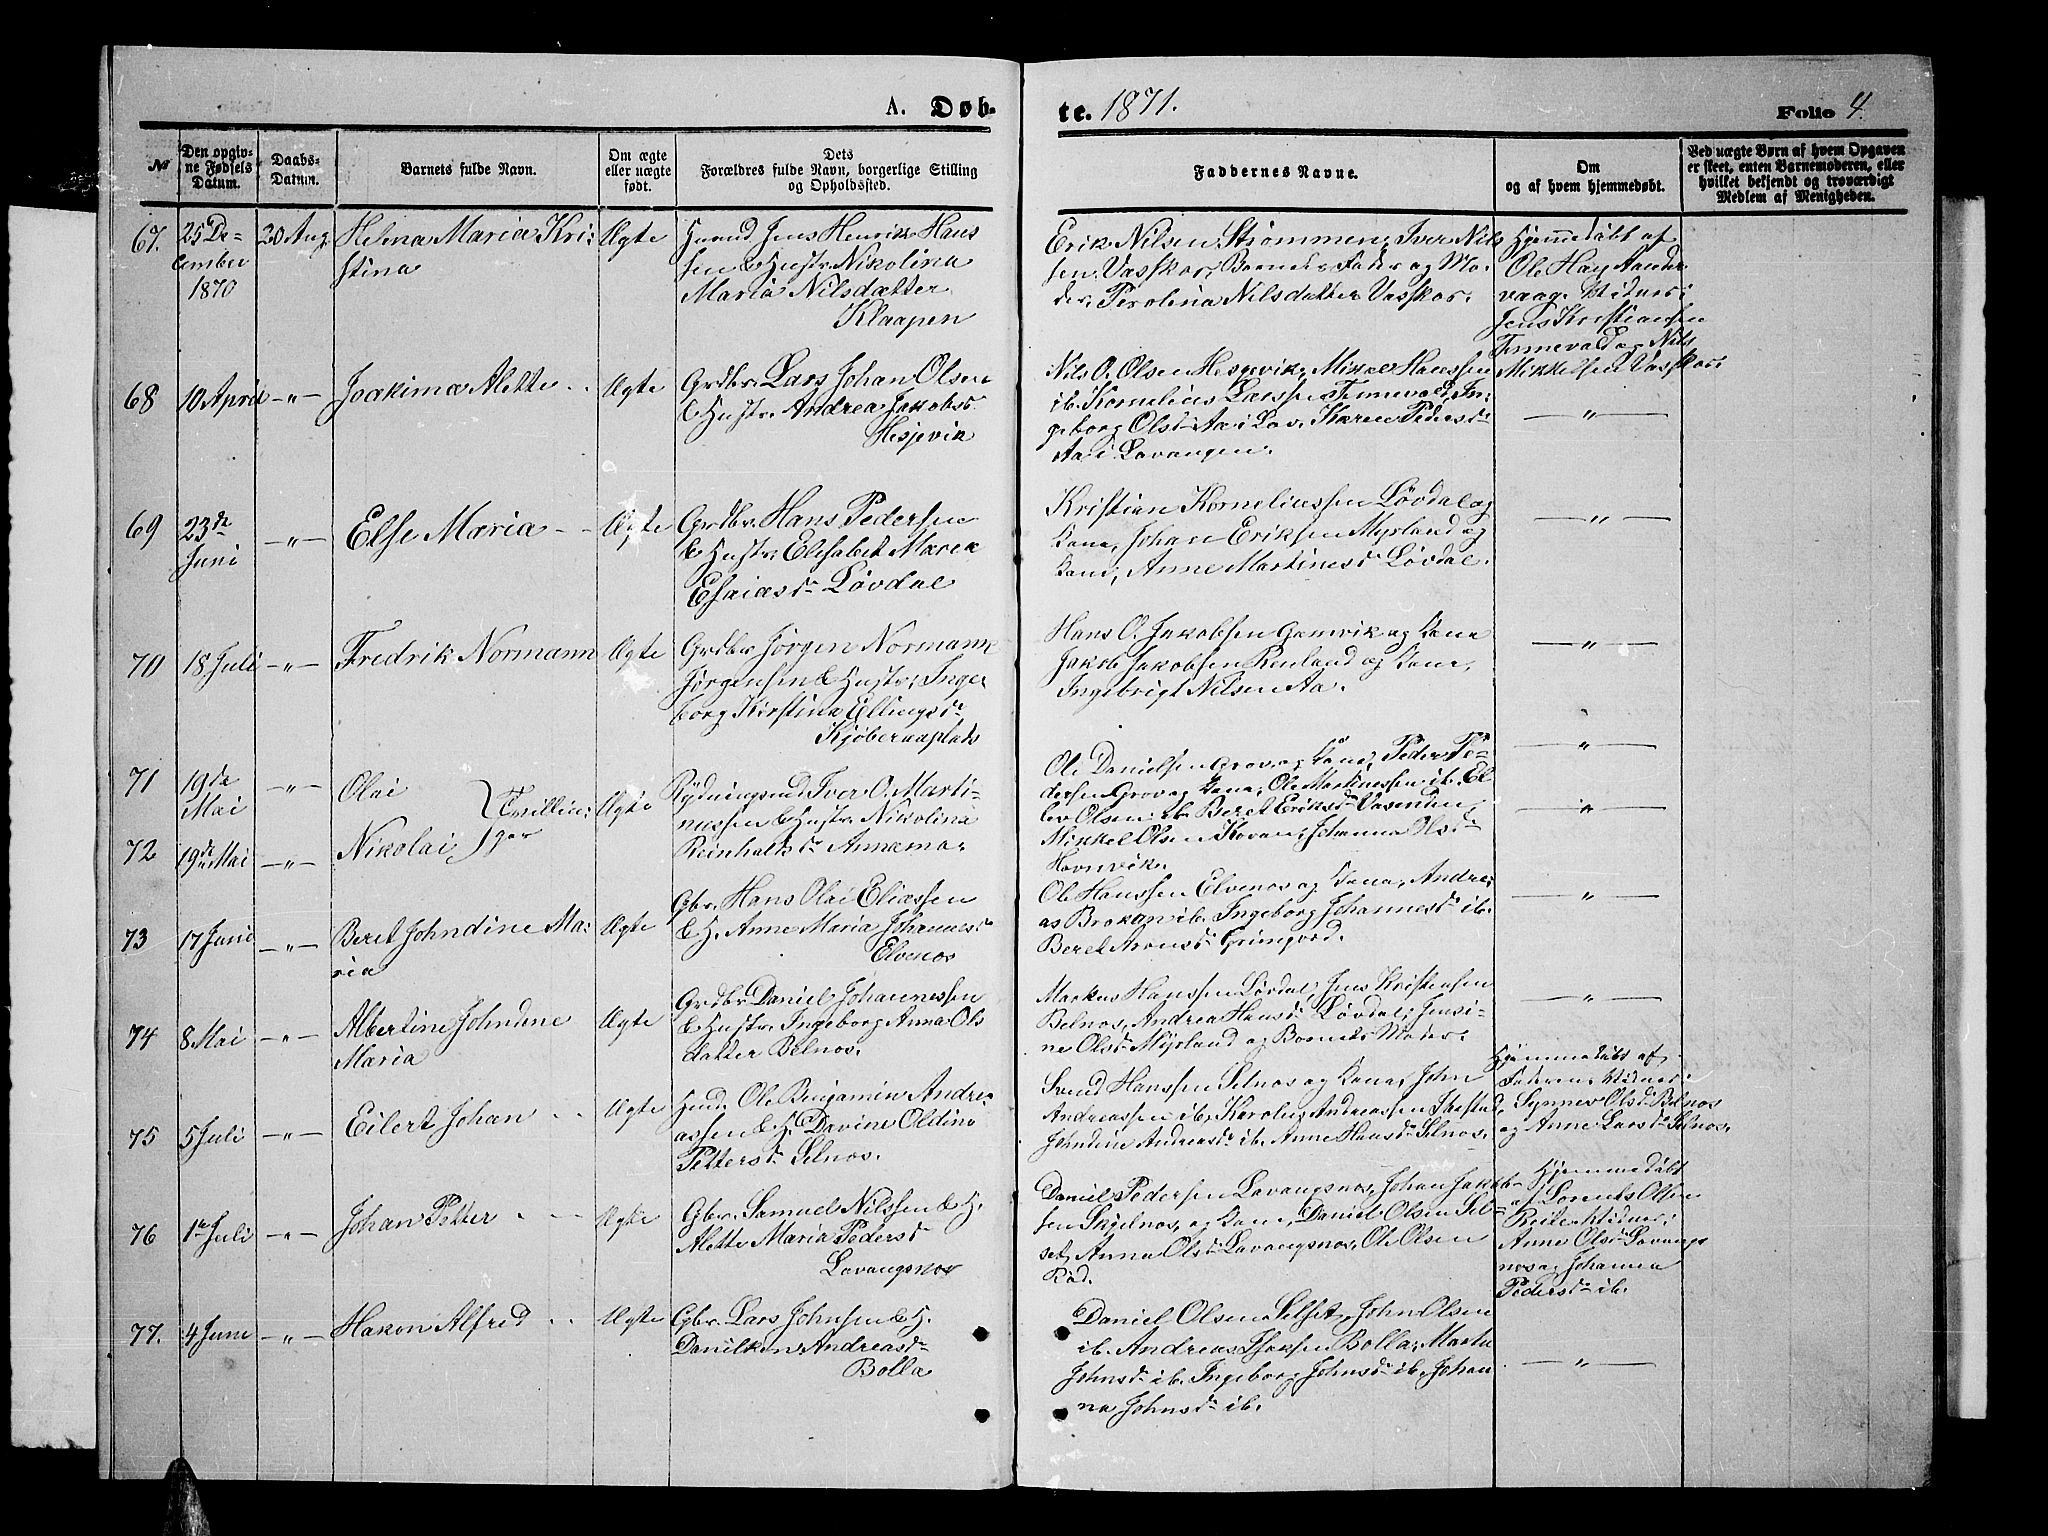 A. Døb-
te. 1871.
Folio 4
№
Den opgiv-
ne Fødsels
Datum.
Daabs-
Datum.
Barnets fulde Navn.
Om ægte
eller uægte
født.
Dets
Forældres fulde Navn, borgerlige Stilling
og Opholdssted.
Faddernes Navne.
Om
og af hvem hjemmedøbt.
Ved uægte Børn af hvem Opgaven
er skeet, enten Barnemoderen, eller
hvilket bekjendt og troværdigt
Medlem af Menigheden.
67.
25 De-
cember
1870
20 Aug.
Helena Maria Kri-
stina
Ægte
Jens Henrik Hans
sen & Hustr. Nikolina
Maria Nilsdatter
Klaapen
Erik Nilsen Strømmen, Iver Nils
sen Vasskar, Barnets Fader og Mo-
der, Perolina Nilsdatter Vasskar.
Hjemmedøbt af
Ole Hay Sander
vaag. Vidner:
Jens Kristiansen
Tennevold og Nils
Mikkelsen Vasskar
68
10 April
—„—
Joakima Alette
Ægte
Grdbr. Lars Johan Olsen
& Hustr. Andrea Jakobsd.
Hesjevik
Nils O. Olsen Hesjevik, Mikal Hanssen
ib. Kornelius Larssen Tennevold, In-
geborg Olsd Aa i Lav. Karen Pedersd
Aa i Lavangen.
—„—
69
23de
Juni
—„—
Else Maria
Ægte
Grdbr. Hans Pedersen
& Hustr. Elisabet Marek
Esaiasd Løvdal
Kristian Korneliussen Løvdal og
Kone, Johan Eriksen Myrland og
Kone, Anne Martinesd Løvdal.
—„—
70
18 Juli
—„—
Fredrik Normann
Ægte
Grdbr. Jørgen Normann
Jørgensen & Hustr. Inge-
borg Kirstina Ellingsd
Hans O. Jakobsen Gamvik og Kone
Jakob Jakobsen Renland og Kone,
Ingebrigt Nilsen Aa.
—„—
71
19de
Mai
—„—
Olai
Tvillin-
ger
Ægte
Rydningsmd Iver O. Marti-
nussen & Hustr. Nikolina
Reinholtsd Annamo.
Ole Danielsen Grov og Kone, Peder Pe-
dersen Grov og Kone, Ole Martinessen ib. El-
lev Olsen ib. Beret Eriksd Vasenden,
Mikkel Olsen Kovan, Johanna Olsd
Havnvik.
—„—
72
19de Mai
—„—
Nikolai
—„—
73
17 Juni
—„—
Beret Johndine Ma-
ria
Ægte
Gbr. Hans Olai Eliassen
& H. Anne Maria Johannesd
Elvenos
Ole Hanssen Elvenos og Kone, Andre-
as Brokan ib. Ingeborg Johannesd ib.
Beret Aronsd Grimjord.
—„—
74
8 Mai
—„—
Albertine Johndine
Maria
Ægte
Grdbr Daniel Johannessen
& Hustr. Ingeborg Anna Ols
datter Belnos.
Markus Hanssen Løvdal, Jens Kristensen
Belnos, Andrea Hansd Løvdal, Jensi-
ne Olsd Myrland og Barnets Moder.
—„—
75
5 Juli
—„—
Eilert Johan
Ægte
Ole Benjamin Andre-
assen & H. Davine Oldine
Pettersd Selnos.
Svend Hanssen Selnos og Kone, John
Andreassen ib. Karolus Andreassen
Johndine Andreasd ib. Anne Hansd Selnos.
Hjemmedøbt af
Faderen Vidner:
Synnev Olsd Belnos
og Anne Larsd Selnos.
76
1ste Juli
—„—
Johan Petter
Ægte
Gbr. Samuel Nilssen & H.
Alette Maria Pedersd
Lavangsnos
Daniel Pedersen Lavangsnos, Johan Jakob-
sen Skjelnos, og Kone, Daniel Olsen Sel-
set, Anna Olsd Lavangsnos, Ole Olsen
Rød.
Hjemmedøbt
af Lorents Olsen
Vidner:
Anne Olsd Lavangs
nos og Johanna
Pedersd ib.
77.
4 Juni
—„—
Hakon Alfred
Ægte
Gbr. Lars Johnsen & H.
Danilken Andreasd
Bolla
Daniel Olsen Selset, John Olsen
ib. Andreas Isaksen Bolla, Marta
Johnsd ib. Ingeborg Johnsd ib. Johan
na Johnsd ib.
—„—